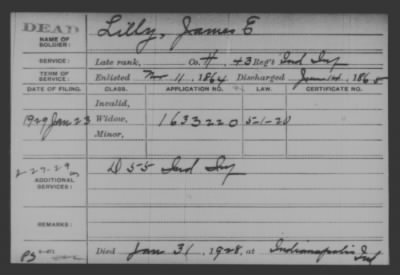 DEAD
NAME OF SOLDIER: Lilly, James E
SERVICE: Late rank, Co. H. 43 Reg't Ind Inf
TERM OF SERVICE: Enlisted Nov 11, 1864 Discharged June 14, 1865
DATE OF FILING. CLASS. APPLICATION NO. LAW. CERTIFICATE NO.
Invalid,
1929 Jan 23 Widow, 1633220 5-1-20
Minor,
2-27-29
ADDITIONAL SERVICES: D 55 Ind Inf
REMARKS:
Died Jan 31, 1928, at Indianapolis Ind